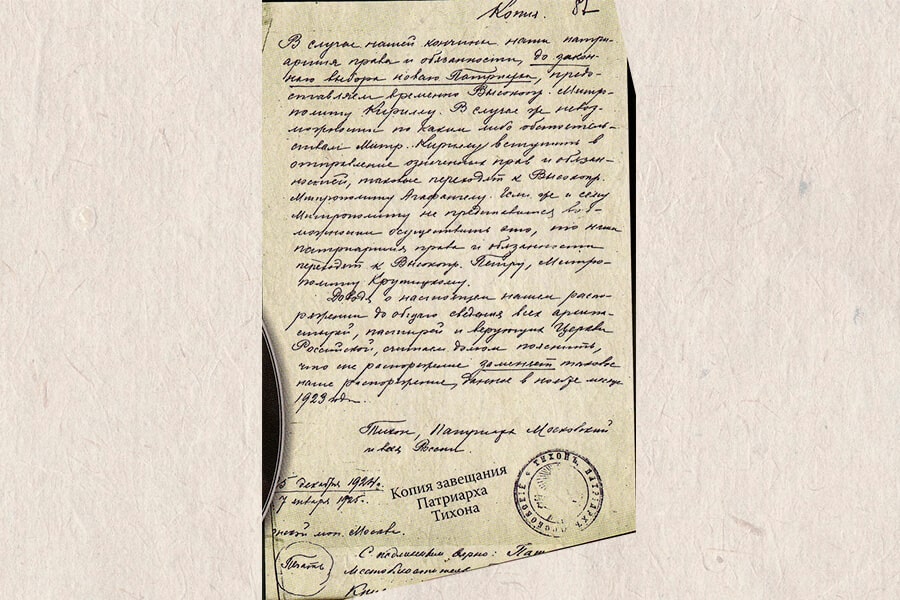 Копия. 87
В случае нашей кончины наши патри-
аршия права и обязанности, до закон-
наго выбора новаго Патриарха, предо-
ставляем временно Высокопр. Митро-
политу Кириллу. В случае же невоз-
можности по каким либо обстоятель-
ствам Митр. Кириллу вступить в
отправление означенных прав и обязан-
ностей, таковые переходят к Высокопр.
Митрополиту Агафангелу. Если же и сему
Митрополиту не представится воз-
можности осуществить это, то наши
патриаршия права и обязанности
переходят к Высокопр. Петру, Митро-
политу Крутицкому.
Доводя о настоящем нашем распо-
ряжении до общаго сведения всех архипа-
стырей, пастырей и верующих Церкви
Российской, считаем долгом пояснить,
что сие распоряжение заменяет таковое
наше распоряжение, данное в ноябре месяце
1923 года.
Тихон, Патриарх Московский
и всея России.
5 декабря 1924 г.
7 января 1925.
Копия завещания
Патриарха
Тихона
ТИХОНЪ, ПАТРИАРХЪ
ской мон. Москва.
Печать
С подлинным верно: Пат
Местоблюститель